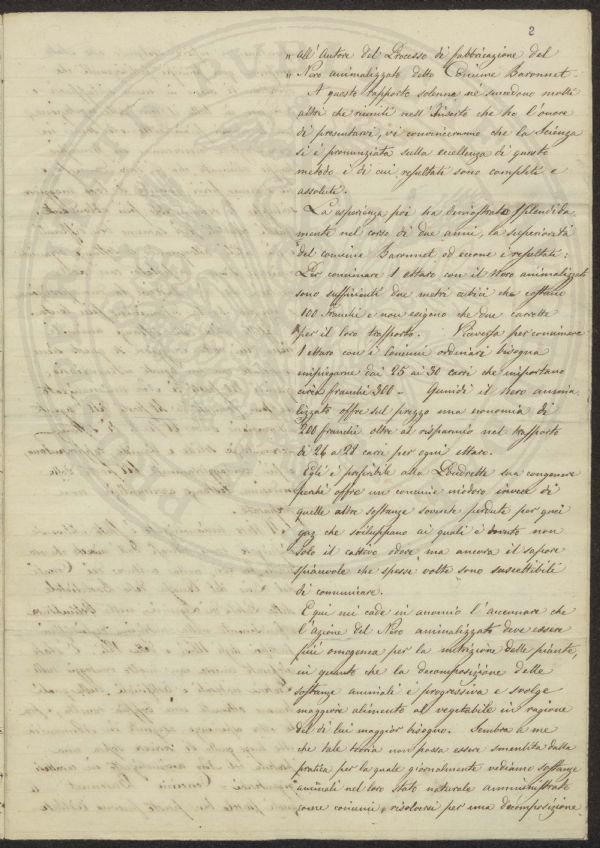 2
" all' Autore del Processo di fabbricazione del
" Nero animalizzato detto Concime Baronnet -
A questo rapporto solenne ne succedono molti
altri che riuniti nell' Inserto che ho l'onore
di presentarvi, vi convinceranno che la Scienza
si è pronunziata sulla eccellenza di questo
metodo e di cui resultati sono completi e
assoluti.
La esperienza poi ha dimostrato splendida
mente nel corso di due anni, la superiorità
del concime Baronnet, ed eccone i resultati:
Per concimare 1 ettaro con il Nero animalizzato
sono sufficienti due metri cubici che costano
100 franchi e non esigono che due carrette
per il loro trasporto. Viceversa per concimare
1 ettaro con i Concimi ordinari bisogna
impiegarne dai 25 ai 30 carri che importano
circa franchi 300 - Quindi il Nero anima
lizzato offre sul prezzo una economia di
200 franchi oltre al risparmio nel trasporto
di 26 a 28 carri per ogni ettaro.
Egli è preferibile alla Poudrette sua congenere
perchè offre un concime inodoro invece di
quelle altre sostanze sovente perdute per quei
gaz che sviluppano ai quali è dovuto non
solo il cattivo odore, ma ancora il sapore
spiacevole che spesse volte sono suscettibili
di comunicare.
E qui mi cade in acconcio l'accennare che
l'azione del Nero animalizzato deve essere
più omogenea per la nutrizione delle piante,
in quanto che la decomposizione delle
sostanze animali è progressiva e svolge
maggiore alimento al vegetabile in ragione
del di lui maggior bisogno. Sembra a me
che tale teoria non possa essere smentita dalla
pratica per la quale giornalmente vediamo sostanze
animali nel loro stato naturale amministrate
come concimi, risolversi per una decomposizione